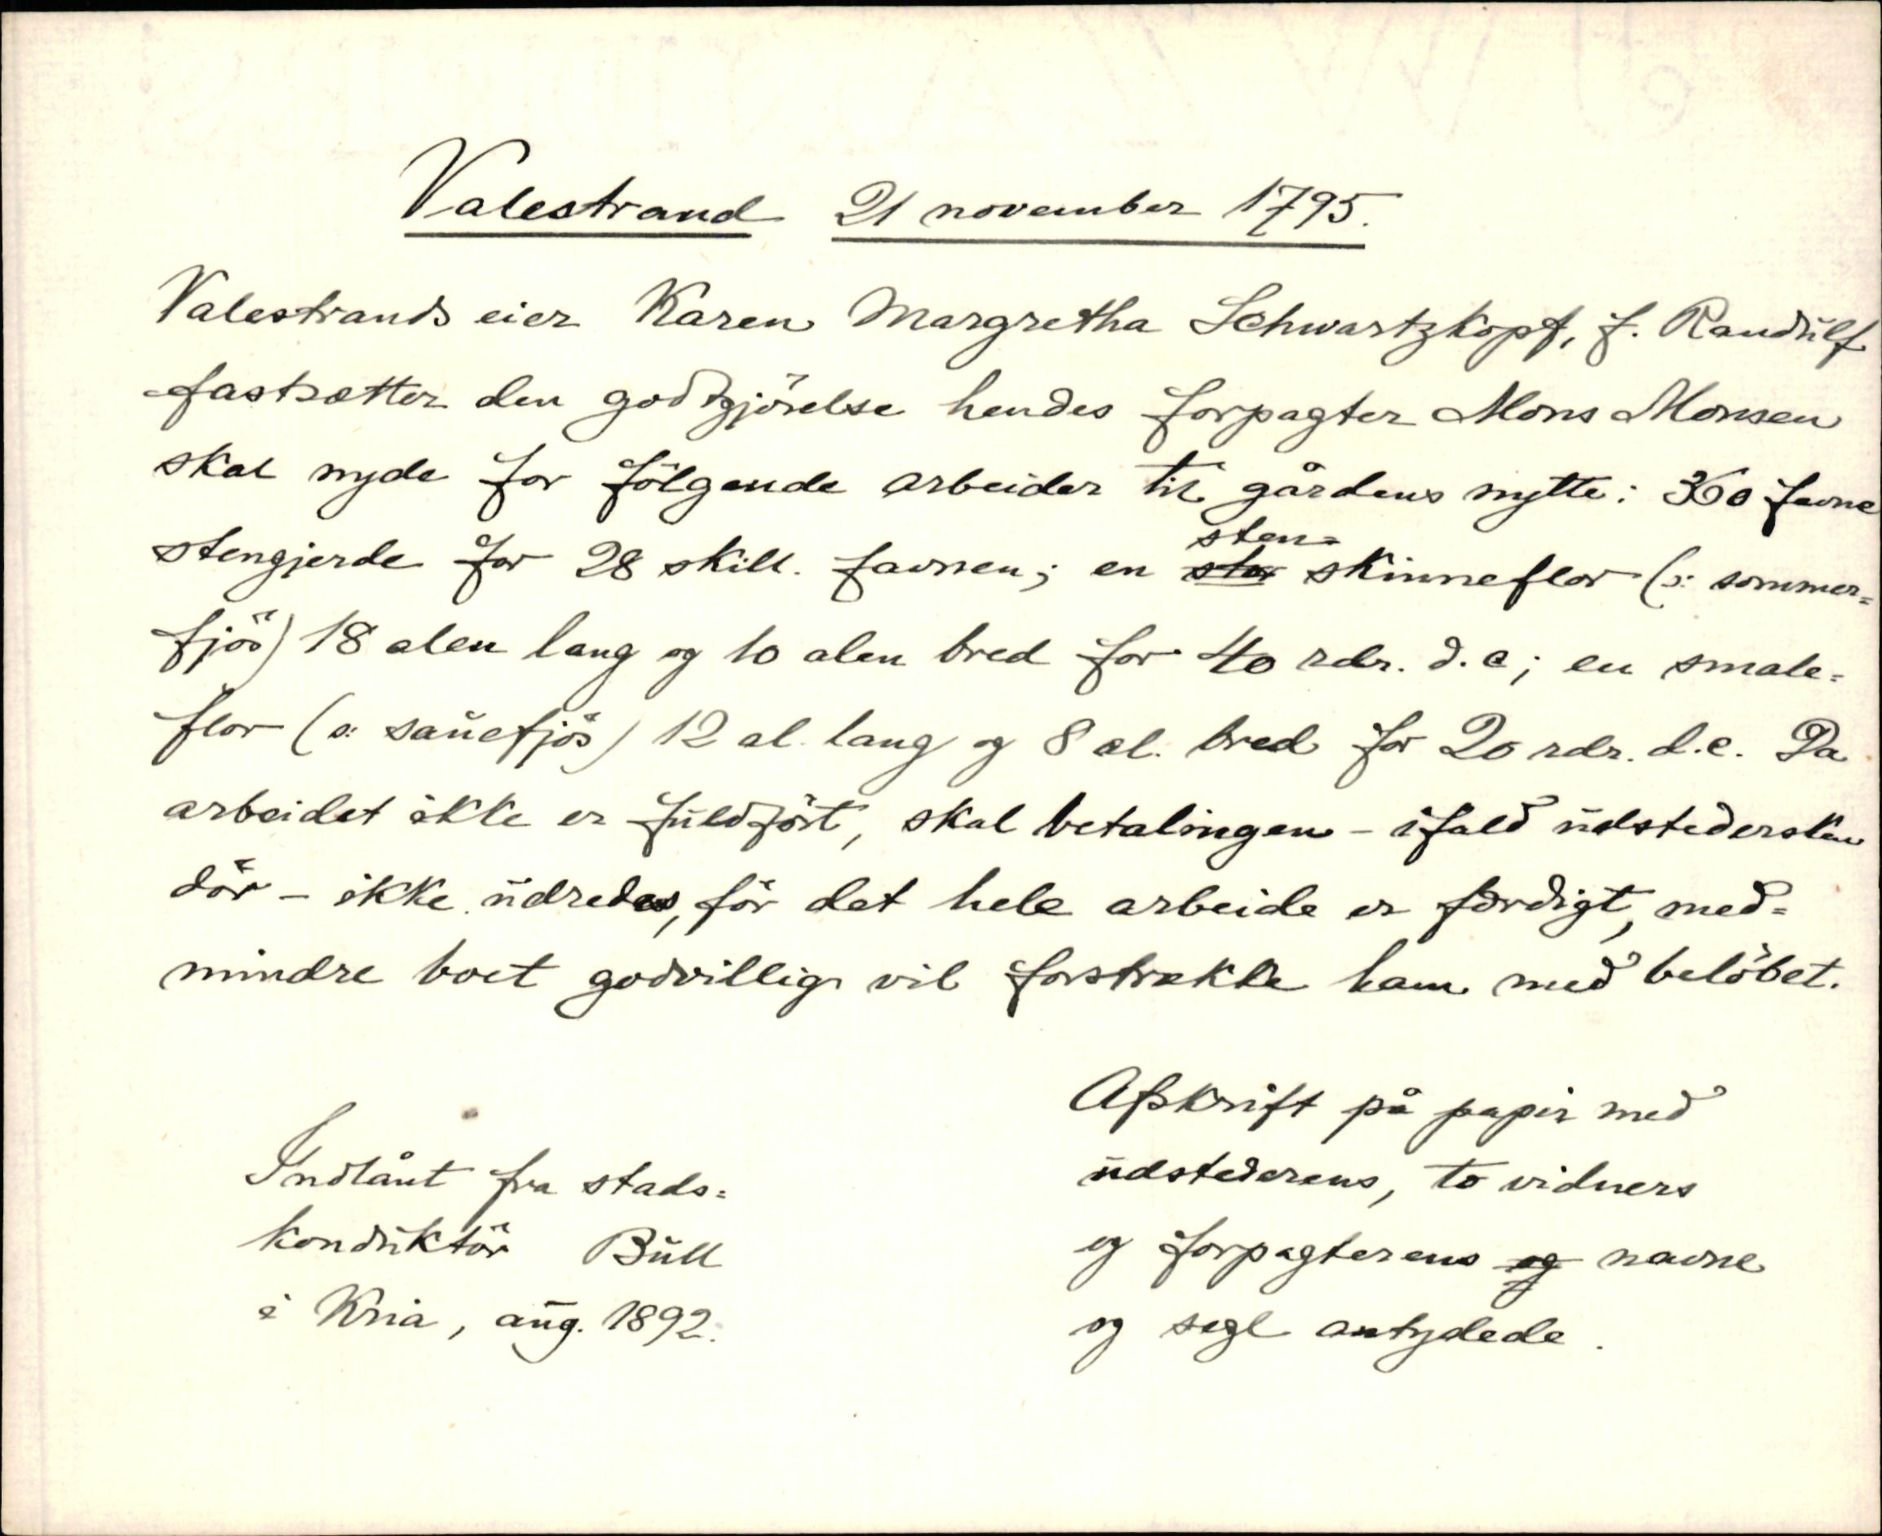 Valestrand 21 november 1795.
Valestrands eier Karen Margretha Schwartzkopf, f. Randulf
fastsætter den godtgjörelse hendes forpagter Mons Monsen
skal nyde for fölgende arbeider til gårdens nytte: 360 favne
stengjerde for 28 skill. favnen; en sten= skinneflor (ɔ: sommer=
fjös) 18 alen lang og 10 alen bred for 40 rdr. d.c; en smale=
flor (ɔ: sauefjös) 12 al. lang og 8 al. bred for 20 rdr. d.c. Da
arbeidet ikke er fuldfört, skal betalingen - ifald udstedersken
dör - ikke udredes, för det hele arbeide er færdigt, med=
mindre boet godvillig vil forstrække ham med belöbet.
Indlånt fra stads=
konduktör Bull
i Kria, aug. 1892.
Afskrift på papir med
udstederens, to vidners
og forpagterens og navne
og segl antydede.